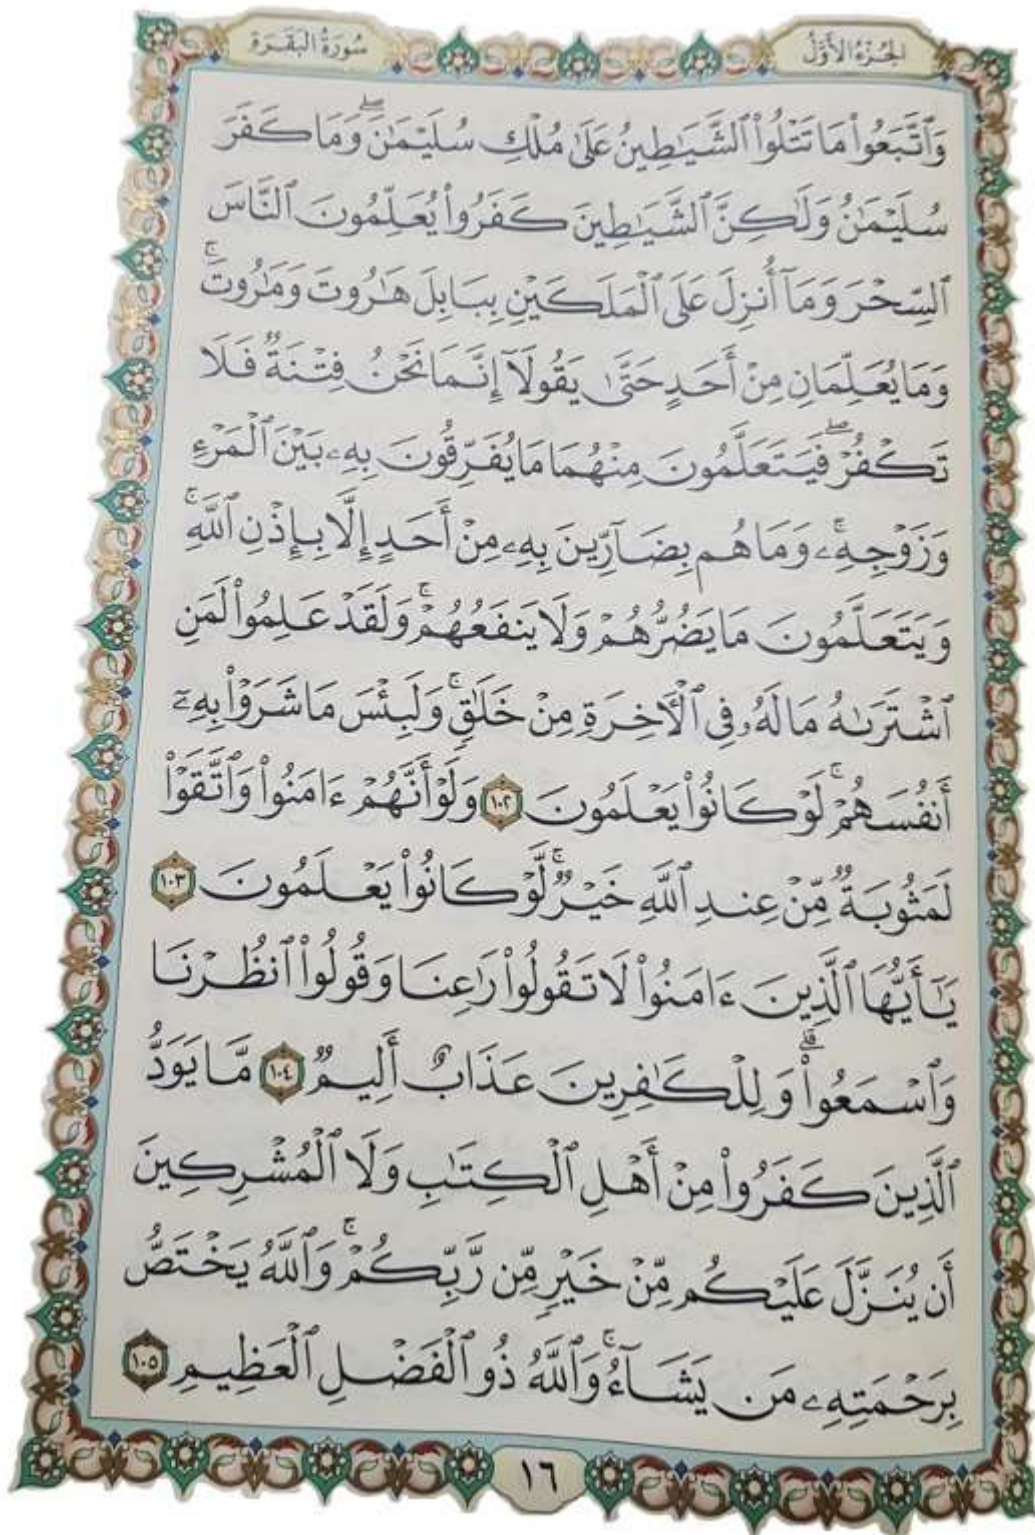 الجزء الأول
سورة البقرة
وَٱتَّبَعُوا۟ مَا تَتْلُوا۟ ٱلشَّيَـٰطِينُ عَلَىٰ مُلْكِ سُلَيْمَـٰنَ ۖ وَمَا كَفَرَ
سُلَيْمَـٰنُ وَلَـٰكِنَّ ٱلشَّيَـٰطِينَ كَفَرُوا۟ يُعَلِّمُونَ ٱلنَّاسَ
ٱلسِّحْرَ وَمَآ أُنزِلَ عَلَى ٱلْمَلَكَيْنِ بِبَابِلَ هَـٰرُوتَ وَمَـٰرُوتَ ۚ
وَمَا يُعَلِّمَانِ مِنْ أَحَدٍ حَتَّىٰ يَقُولَآ إِنَّمَا نَحْنُ فِتْنَةٌ فَلَا
تَكْفُرْ ۖ فَيَتَعَلَّمُونَ مِنْهُمَا مَا يُفَرِّقُونَ بِهِۦ بَيْنَ ٱلْمَرْءِ
وَزَوْجِهِۦ ۚ وَمَا هُم بِضَآرِّينَ بِهِۦ مِنْ أَحَدٍ إِلَّا بِإِذْنِ ٱللَّهِ ۚ
وَيَتَعَلَّمُونَ مَا يَضُرُّهُمْ وَلَا يَنفَعُهُمْ ۚ وَلَقَدْ عَلِمُوا۟ لَمَنِ
ٱشْتَرَىٰهُ مَا لَهُۥ فِى ٱلْـَٔاخِرَةِ مِنْ خَلَـٰقٍ ۚ وَلَبِئْسَ مَا شَرَوْا۟ بِهِۦٓ
أَنفُسَهُمْ ۚ لَوْ كَانُوا۟ يَعْلَمُونَ ١٠٢ وَلَوْ أَنَّهُمْ ءَامَنُوا۟ وَٱتَّقَوْا۟
لَمَثُوبَةٌ مِّنْ عِندِ ٱللَّهِ خَيْرٌ ۚ لَّوْ كَانُوا۟ يَعْلَمُونَ ١٠٣
يَـٰٓأَيُّهَا ٱلَّذِينَ ءَامَنُوا۟ لَا تَقُولُوا۟ رَٰعِنَا وَقُولُوا۟ ٱنظُرْنَا
وَٱسْمَعُوا۟ ۗ وَلِلْكَـٰفِرِينَ عَذَابٌ أَلِيمٌ ١٠٤ مَّا يَوَدُّ
ٱلَّذِينَ كَفَرُوا۟ مِنْ أَهْلِ ٱلْكِتَـٰبِ وَلَا ٱلْمُشْرِكِينَ
أَن يُنَزَّلَ عَلَيْكُم مِّنْ خَيْرٍ مِّن رَّبِّكُمْ ۚ وَٱللَّهُ يَخْتَصُّ
بِرَحْمَتِهِۦ مَن يَشَآءُ ۚ وَٱللَّهُ ذُو ٱلْفَضْلِ ٱلْعَظِيمِ ١٠٥
١٦